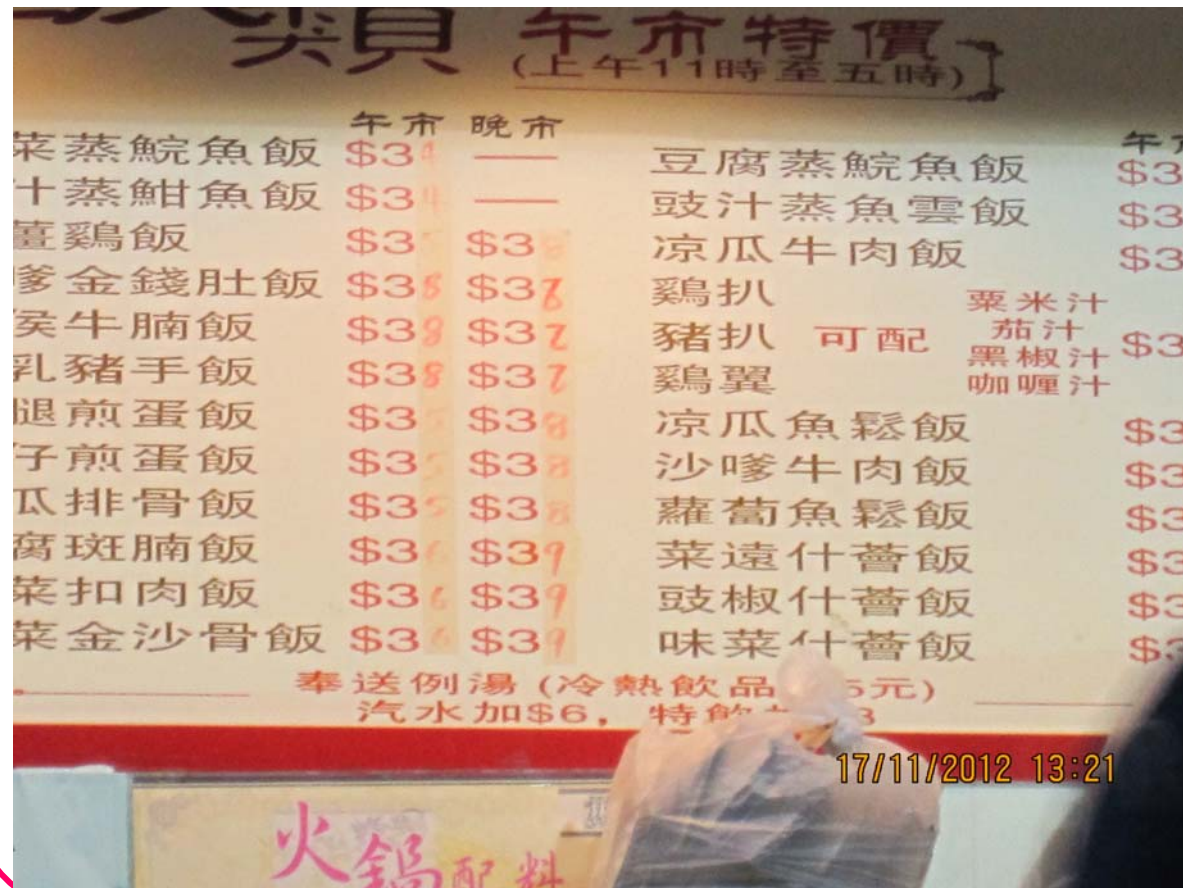 類 午市特價
(上午11時至五時)
午市 晚市
菜蒸鯇魚飯 $34 ——
汁蒸魽魚飯 $34 ——
薑鷄飯 $35 $38
嗲金錢肚飯 $38 $37
侯牛腩飯 $38 $37
乳豬手飯 $38 $37
腿煎蛋飯 $35 $38
仔煎蛋飯 $35 $38
瓜排骨飯 $35 $38
腐斑腩飯 $36 $39
菜扣肉飯 $36 $39
菜金沙骨飯 $36 $39
午市
豆腐蒸鯇魚飯 $3
豉汁蒸魚雲飯 $3
凉瓜牛肉飯 $3
鷄扒
豬扒 可配
鷄翼
粟米汁
茄汁
黑椒汁
咖喱汁
$3
凉瓜魚鬆飯 $3
沙嗲牛肉飯 $3
蘿蔔魚鬆飯 $3
菜遠什薈飯 $3
豉椒什薈飯 $3
味菜什薈飯 $3
奉送例湯 (冷熱飲品 5元)
汽水加$6, 特飲
火鍋配料
17/11/2012 13:21